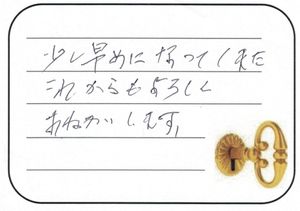 少し早めになってしまた
これからもよろしく
おねがいします,